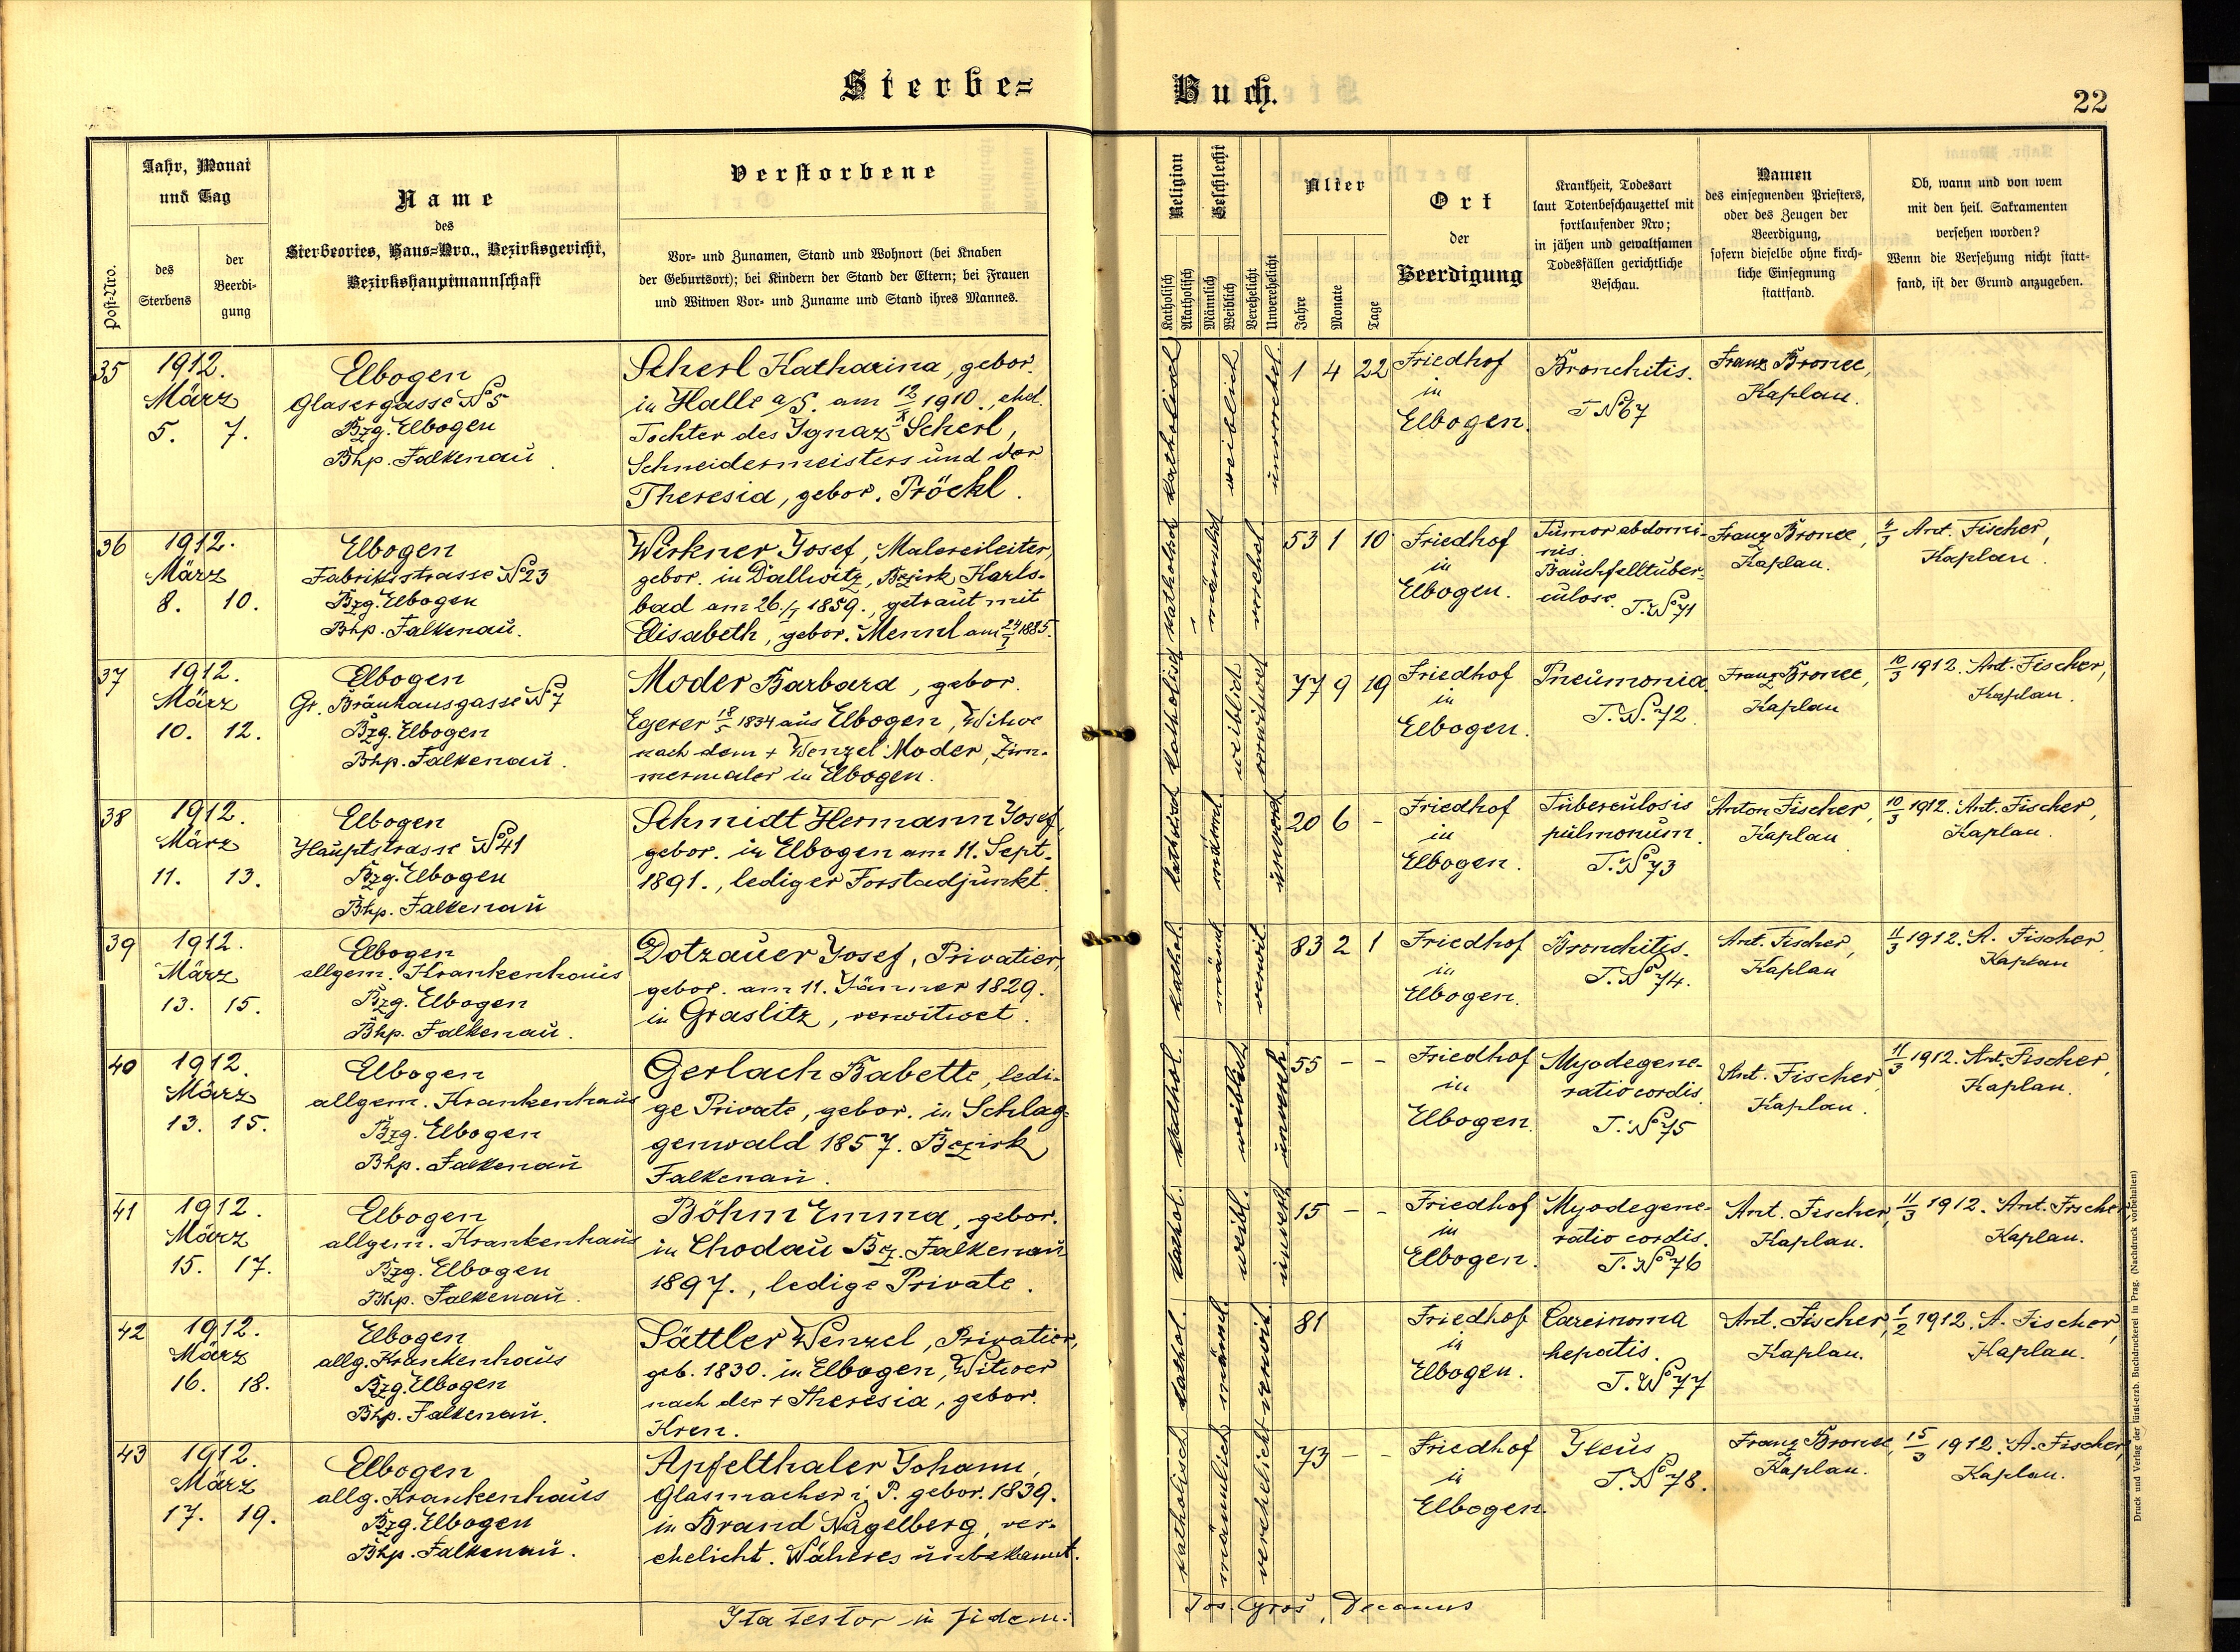 Sterbe=
Buch.
22
Post-Nro.
Jahr, Monat
und Tag
des
Sterbens
der
Beerdi-
gung
Name
des
Sterbeortes, Haus-Nro., Bezirksgericht,
Bezirkshauptmannschaft
Verstorbene
Vor- und Zunamen, Stand und Wohnort (bei Knaben
der Geburtsort); bei Kindern der Stand der Eltern; bei Frauen
und Witwen Vor- und Zuname und Stand ihres Mannes.
Religion
Katholisch
Akatholisch
Geschlecht
Männlich
Weiblich
Verehelicht
Unverehelicht
Alter
Jahre
Monate
Tage
Ort
der
Beerdigung
Krankheit, Todesart
laut Totenbeschauzettel mit
fortlaufender Nro;
in jähen und gewaltsamen
Todesfällen gerichtliche
Beschau.
Namen
des einsegnenden Priesters,
oder des Zeugen der
Beerdigung,
sofern dieselbe ohne kirch-
liche Einsegnung
stattfand.
Ob, wann und von wem
mit den heil. Sakramenten
versehen worden?
Wenn die Versehung nicht statt-
fand, ist der Grund anzugeben.
35
1912.
März
5. 7.
Elbogen
Glasergasse No 5
Bzg. Elbogen
Bhp. Falkenau
Scherl Katharina, gebor.
in Halle a/S. am 12/X 1910., ehel.
Tochter des Ignaz Scherl,
Schneidermeisters und der
Theresia, gebor. Pröckl.
katholisch
weiblich
unverehel.
1 4 22
Friedhof
in
Elbogen.
Bronchitis.
T No 67
Franz Bronec,
Kaplan.
36
1912.
März
8. 10.
Elbogen
Fabriksstrasse No 23
Bzg. Elbogen
Bhp. Falkenau.
Wirkner Josef, Malereileiter,
gebor. in Dallwitz, Bezirk Karls-
bad am 26./I 1859., getraut mit
Elisabeth, gebor. Mennl am 24/I 1885.
katholisch
männlich
verehel.
53 1 10
Friedhof
in
Elbogen.
Tumor abdomi-
nis.
Bauchfelltuber-
culose. T. No 71
Franz Bronec,
Kaplan.
4/3 Ant. Fischer,
Kaplan.
37
1912.
März
10. 12.
Elbogen
Gr. Bräuhausgasse No 7
Bzg. Elbogen
Bhp. Falkenau.
Moder Barbara, gebor.
Egerer 18/5 1834 aus Elbogen, Witwe
nach dem + Wenzel Moder, Zim-
mermaler in Elbogen.
katholisch
weiblich
verwitwet
77 9 19
Friedhof
in
Elbogen.
Pneumonia.
T. N. 72.
Franz Bronec,
Kaplan
10/3 1912. Ant. Fischer,
Kaplan.
38
1912.
März
11. 13.
Elbogen
Hauptstrasse No 41
Bzg. Elbogen
Bhp. Falkenau
Schmidt Hermann Josef,
gebor. in Elbogen am 11. Sept.
1891., lediger Forstadjunkt.
katholisch
männl.
unvereh.
20 6 -
Friedhof
in
Elbogen.
Tuberculosis
pulmonum.
T. No 73
Anton Fischer,
Kaplan
10/3 1912. Ant. Fischer,
Kaplan.
39
1912.
März
13. 15.
Elbogen
allgem. Krankenhaus
Bzg. Elbogen
Bhp. Falkenau.
Dotzauer Josef, Privatier,
gebor. am 11. Jänner 1829.
in Graslitz, verwitwet.
kathol.
männl.
verwit.
83 2 1
Friedhof
in
Elbogen.
Bronchitis.
T. No 74.
Ant. Fischer,
Kaplan
11/3 1912. A. Fischer,
Kaplan
40
1912.
März
13. 15.
Elbogen
allgem. Krankenhaus
Bzg. Elbogen
Bhp. Falkenau
Gerlach Babette, ledi-
ge Private, gebor. in Schlag-
genwald 1857. Bezirk
Falkenau.
kathol.
weiblich
unvereh.
55 - -
Friedhof
in
Elbogen.
Myodegene-
ratio cordis.
T. No 75
Ant. Fischer,
Kaplan.
11/3 1912. Ant. Fischer,
Kaplan.
41
1912.
März
15. 17.
Elbogen
allgem. Krankenhaus
Bzg. Elbogen
Bhp. Falkenau.
Böhm Emma, gebor.
in Chodau Bez. Falkenau
1897., ledige Private.
kathol.
weibl.
unvereh.
15 - -
Friedhof
in
Elbogen.
Myodegene-
ratio cordis.
T. No 76
Ant. Fischer,
Kaplan.
11/3 1912. Ant. Fischer,
Kaplan.
42
1912.
März
16. 18.
Elbogen
allg. Krankenhaus
Bzg. Elbogen
Bhp. Falkenau.
Sättler Wenzel, Privatier,
geb. 1830. in Elbogen, Witwer
nach der + Theresia, gebor.
Kren.
kathol.
männl.
verwit.
81
Friedhof
in
Elbogen.
Carcinoma
hepatis.
T. No 77
Ant. Fischer,
Kaplan.
1/2 1912. A. Fischer,
Kaplan.
43
1912.
März
17. 19.
Elbogen
allg. Krankenhaus
Bzg. Elbogen
Bhp. Falkenau.
Apfelthaler Johann,
Glasmacher i. P. gebor. 1839.
in Brand Nagelberg, ver-
ehelicht. Näheres unbekannt.
katholisch
männlich
verehelicht
73 - -
Friedhof
in
Elbogen.
Ileus
T. No 78.
Franz Bronec,
Kaplan.
15/3 1912. A. Fischer,
Kaplan.
Ita testor in fidem:
Jos. Groš, Decanus
Druck und Verlag der fürst-erzb. Buchdruckerei in Prag. (Nachdruck vorbehalten)